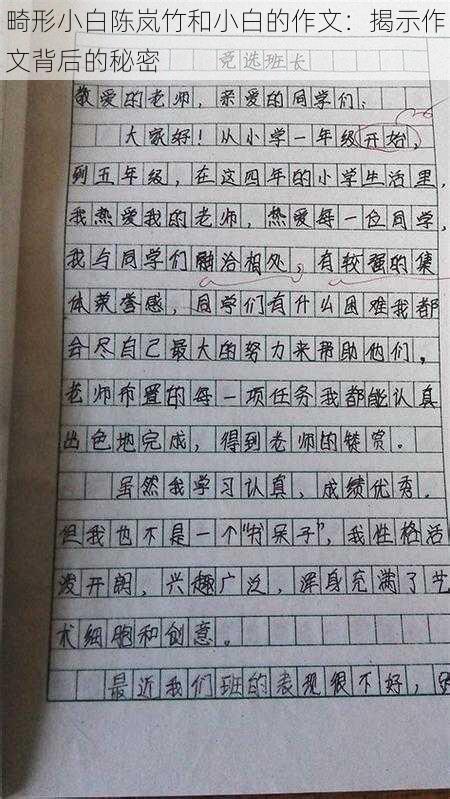 畸形小白陈岚竹和小白的作文：揭示作
文背后的秘密
竞选班长
敬爱的老师，亲爱的同学们：
大家好！从小学一年级开始，
到五年级，在这四年的小学生活里，
我热爱我的老师，热爱每一位同学，
我与同学们融洽相处，有较强的集
体荣誉感，同学们有什么困难我都
会尽自己最大的努力来帮助他们，
老师布置的每一项任务我都能认真
出色地完成，得到老师的赞赏。
虽然我学习认真，成绩优秀，
但我也不是一个“书呆子”，我性格活
泼开朗，兴趣广泛，浑身充满了艺
术细胞和创意。
最近我们班的表现很不好，